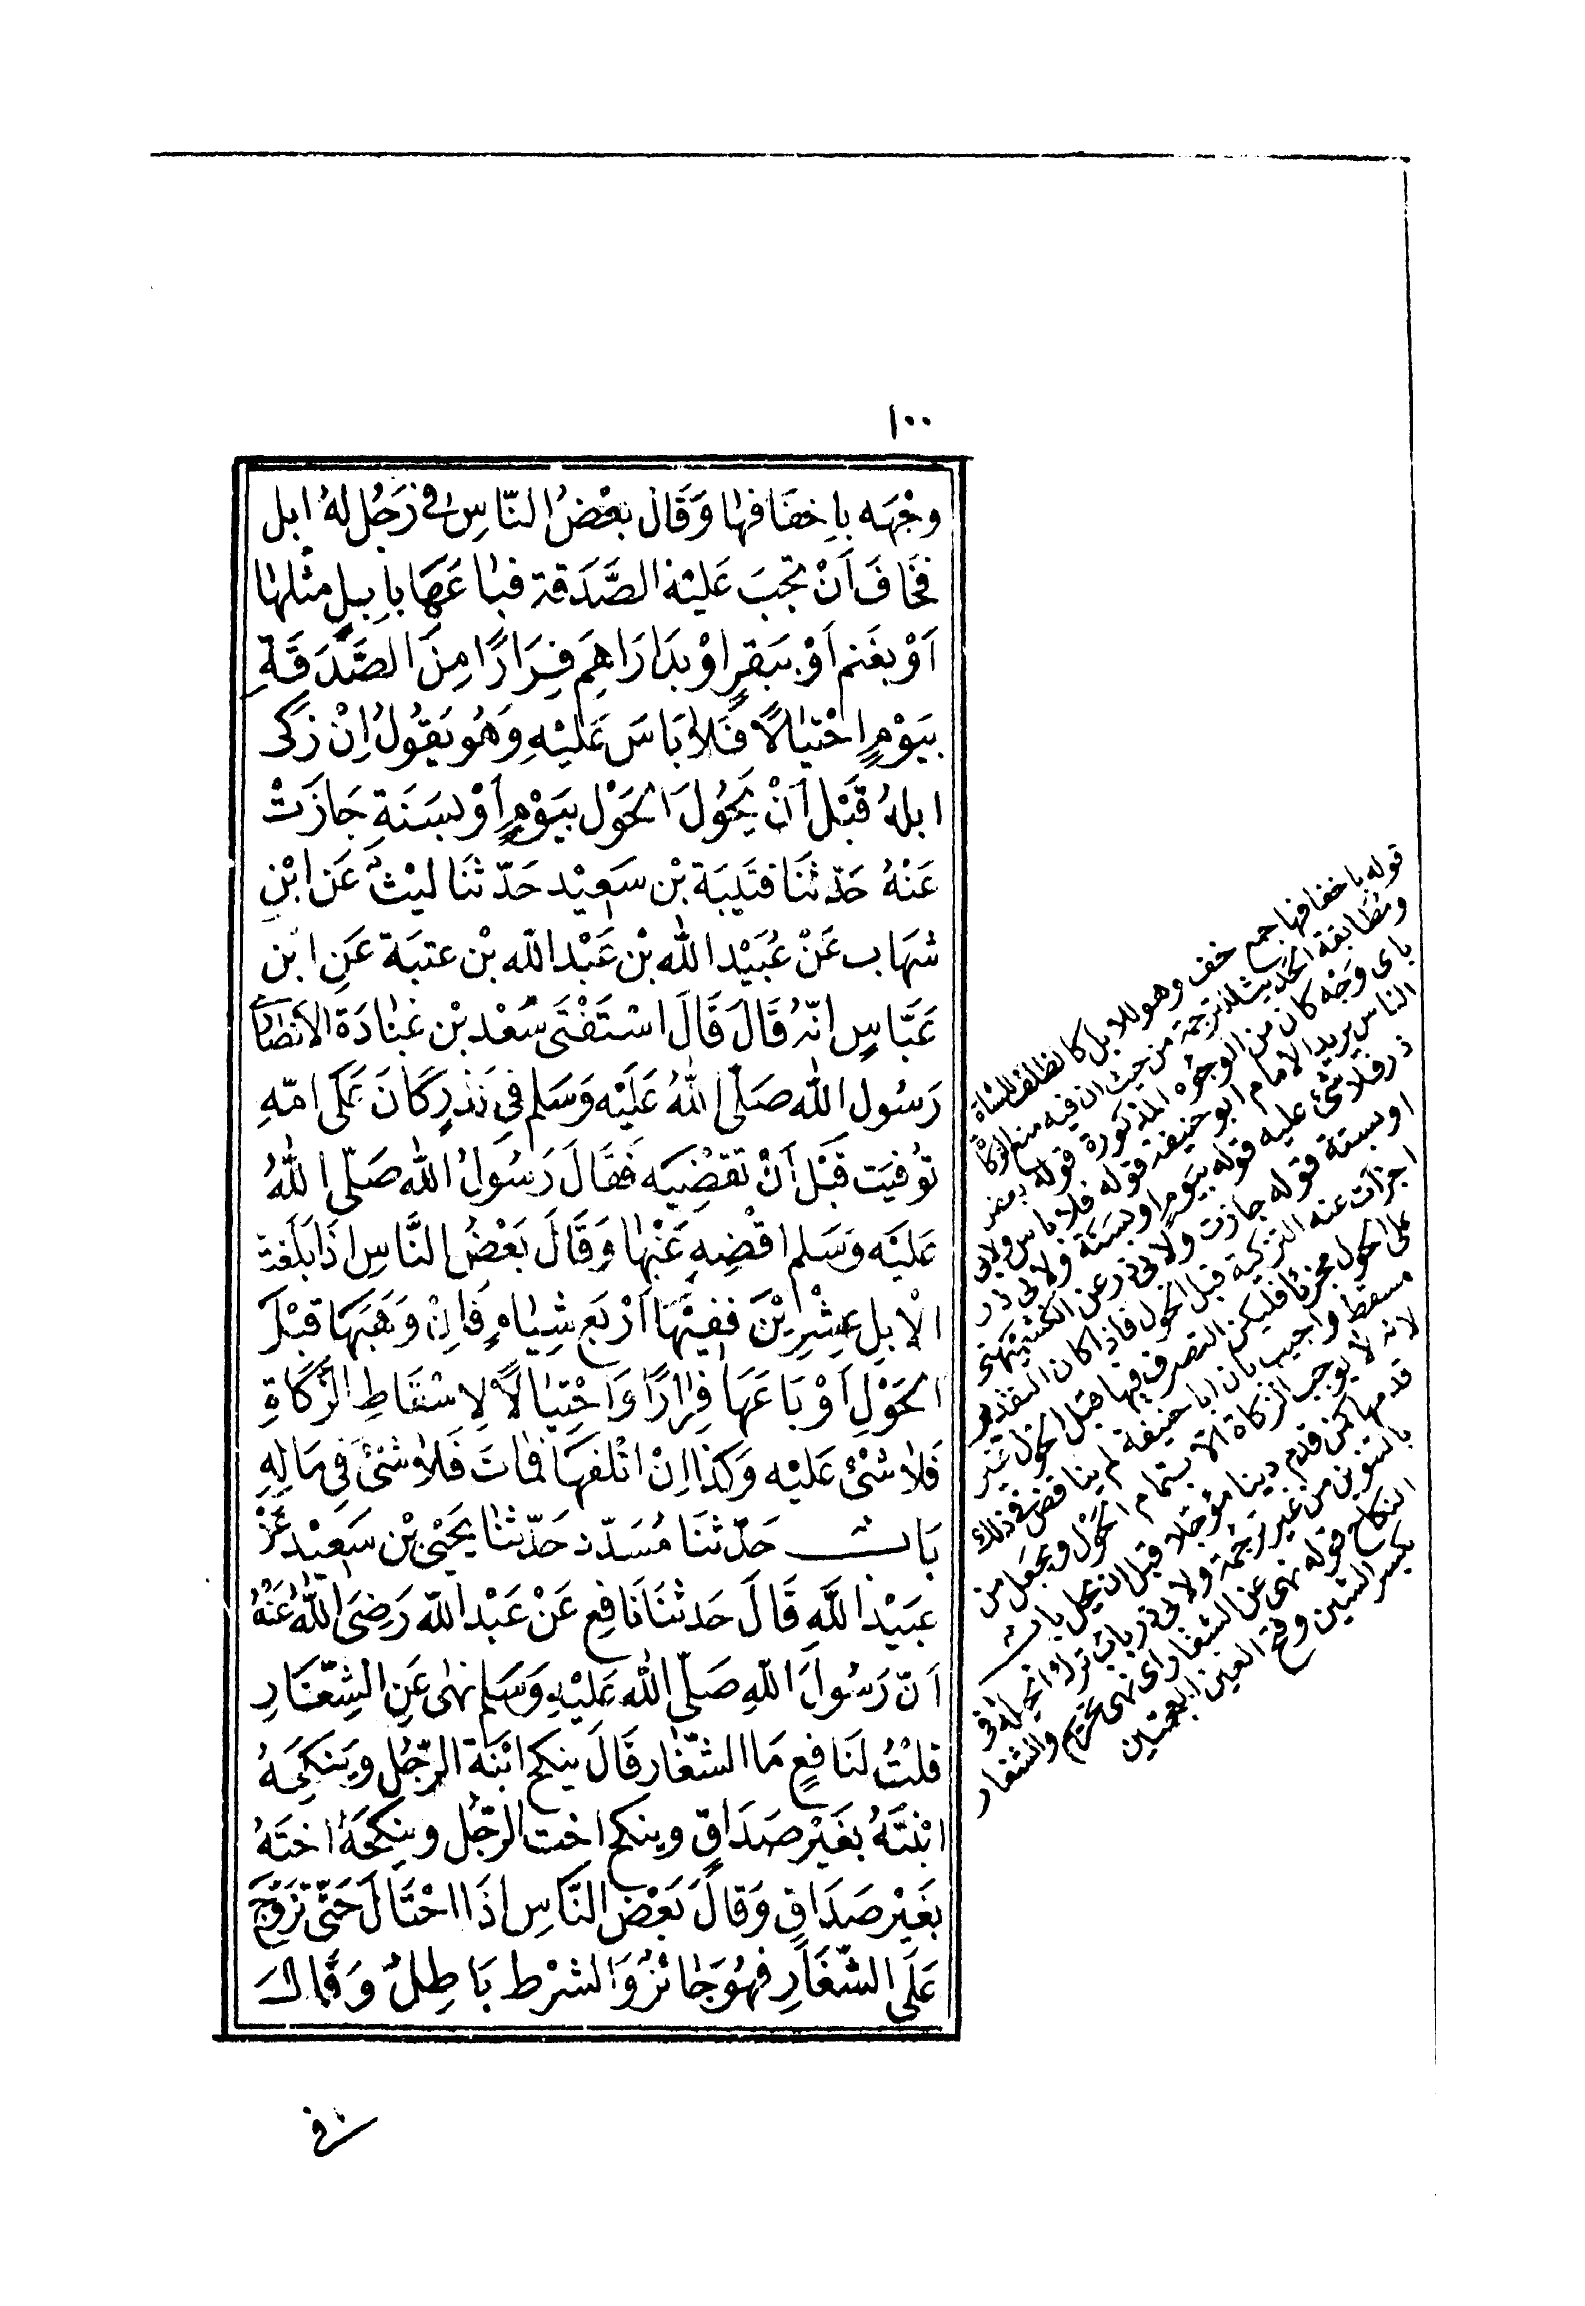 ١٠٠
وجْهَه بِاخِفَافهَا وَقَالَ بعْضُ النّاسِ فى رَجُل لهُ ابل
فخَافَ اَنْ تجبَ عَليْهِ الصَّدَقة فبَاعَهَا بِابِلٍ مثلهَا
اَوْ بغَنم اَوْ ببَقرٍ اوْ بدَارَاهِمَ فِرَارًا مِنَ الصَّدَقَةِ
بيَوْمٍ احْتيَالاً فَلاَ بَاسَ عَليْهِ وَهُو يَقُولُ اِنْ زَكى
ابلهُ قَبْل اَنْ يحُولَ الحَوْل بيَوْمٍ اَوْ بسَنَةٍ جَازَتْ
عَنْهُ حَدّثَنَا قتَيبَة بْن سَعِيْد حَدّثنَا ليْثٌ عَن ابْنِ
شهَاب عَنْ عُبَيْد الله بْن عَبْد الله بْن عتبَة عَنِ ابن
عَبَّاسٍ انّهُ قَالَ قَالَ اسْتَفْتَى سَعْد بْن عُبَادَة الاَنصَارى
رَسُول الله صَلّى اللهُ عَلَيْه وَسَلم فى نَذرٍ كَانَ عَلَى امّهِ
توُفيَت قَبْل اَنْ تقضِيَه فَقَالَ رَسُولُ الله صَلّى اللهُ
عَليْه وَسَلم اقْضِهِ عَنْهَا وَقَالَ بَعْضُ النَّاسِ اذَا بَلَغَت
الْابِلِ عِشْرِيْنَ ففِيْهَا اَرْبَع شِيَاهٍ فَاِنْ وَهَبَهَا قَبْلَ
الحَوْلِ اَوْ بَاعَهَا فِرَارًا وَاحْتِيَالاً لِاسْقَاطِ الزَّكَاةِ
فَلاَ شئَ عَليْه وَكَذا اِنْ اتْلفهَا فَمَاتَ فَلاَ شئَ فِى مَالِهِ
بَاب حَدّثنَا مُسَدّد حَدّثنَا يَحْيٰى بْن سَعِيْد عَنْ
عبَيْد اللهِ قَالَ حَدثنَا نَافِع عَنْ عَبْد الله رَضِىَ اللهُ عَنْهُ
اَنّ رَسُولَ اللهِ صَلّى الله عَليْهِ وَسَلم نهٰى عَنِ الشِّغَارِ
قلْتُ لنَافِعٍ مَا الشّغَار قَالَ ينكح ابْنَة الرّجُل وَينكحَهُ
ابْنتَهُ بغَيْر صَدَاقٍ وينكح اخت الرّجُل وينكحَهُ اختَهُ
بغَيْر صَدَاقٍ وَقالَ بَعْض النَّاسِ اذَا احْتَالَ حَتّى تزَوّجَ
عَلَى الشّغَارِ فهُوَ جَائزٌ وَالشرْط بَاطِلٌ وَقَالَ
قوله باخفافها جمع خف وهو للابل كالظلف للشاة
ومطابقة الحديث للترجمة من حيث ان فيه منع الزكاة
باى وجه كان من الوجوه المذكورة قوله بعض
الناس يريد الامام ابو حنيفة قوله فلا باس ولابى
ذر فلا شئ عليه قوله بيوم او بسنة ولابى ذر
او بستة قوله جازت ولابى ذر عن الكشميهنى
اجزات عنه التزكية قبل الحول فاذا كان التقديم
على الحول مجزئا فليكن التصرف فيها قبل الحول غير
مسقط واجيب بان ابا حنيفة لم يناقض فى ذلك
لانه لا يوجب الزكاة الا بتمام الحول ويجعل من
قدمها كمن قدم دينا مؤجلا قبل ان يحل باب
بالتنوين من غير ترجمة ولابى ذر باب ترك الحيلة فى
النكاح قوله نهى عن الشغار اى نهى تحريم والشغار
بكسر الشين وفتح الغين المعجمتين
فى